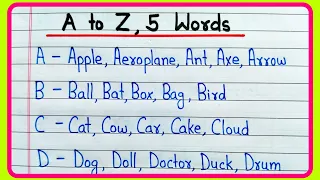 A to Z, 5 Words
A - Apple, Aeroplane, Ant, Axe, Arrow
B - Ball, Bat, Box, Bag, Bird
C - Cat, Cow, Car, Cake, Cloud
D - Dog, Doll, Doctor, Duck, Drum